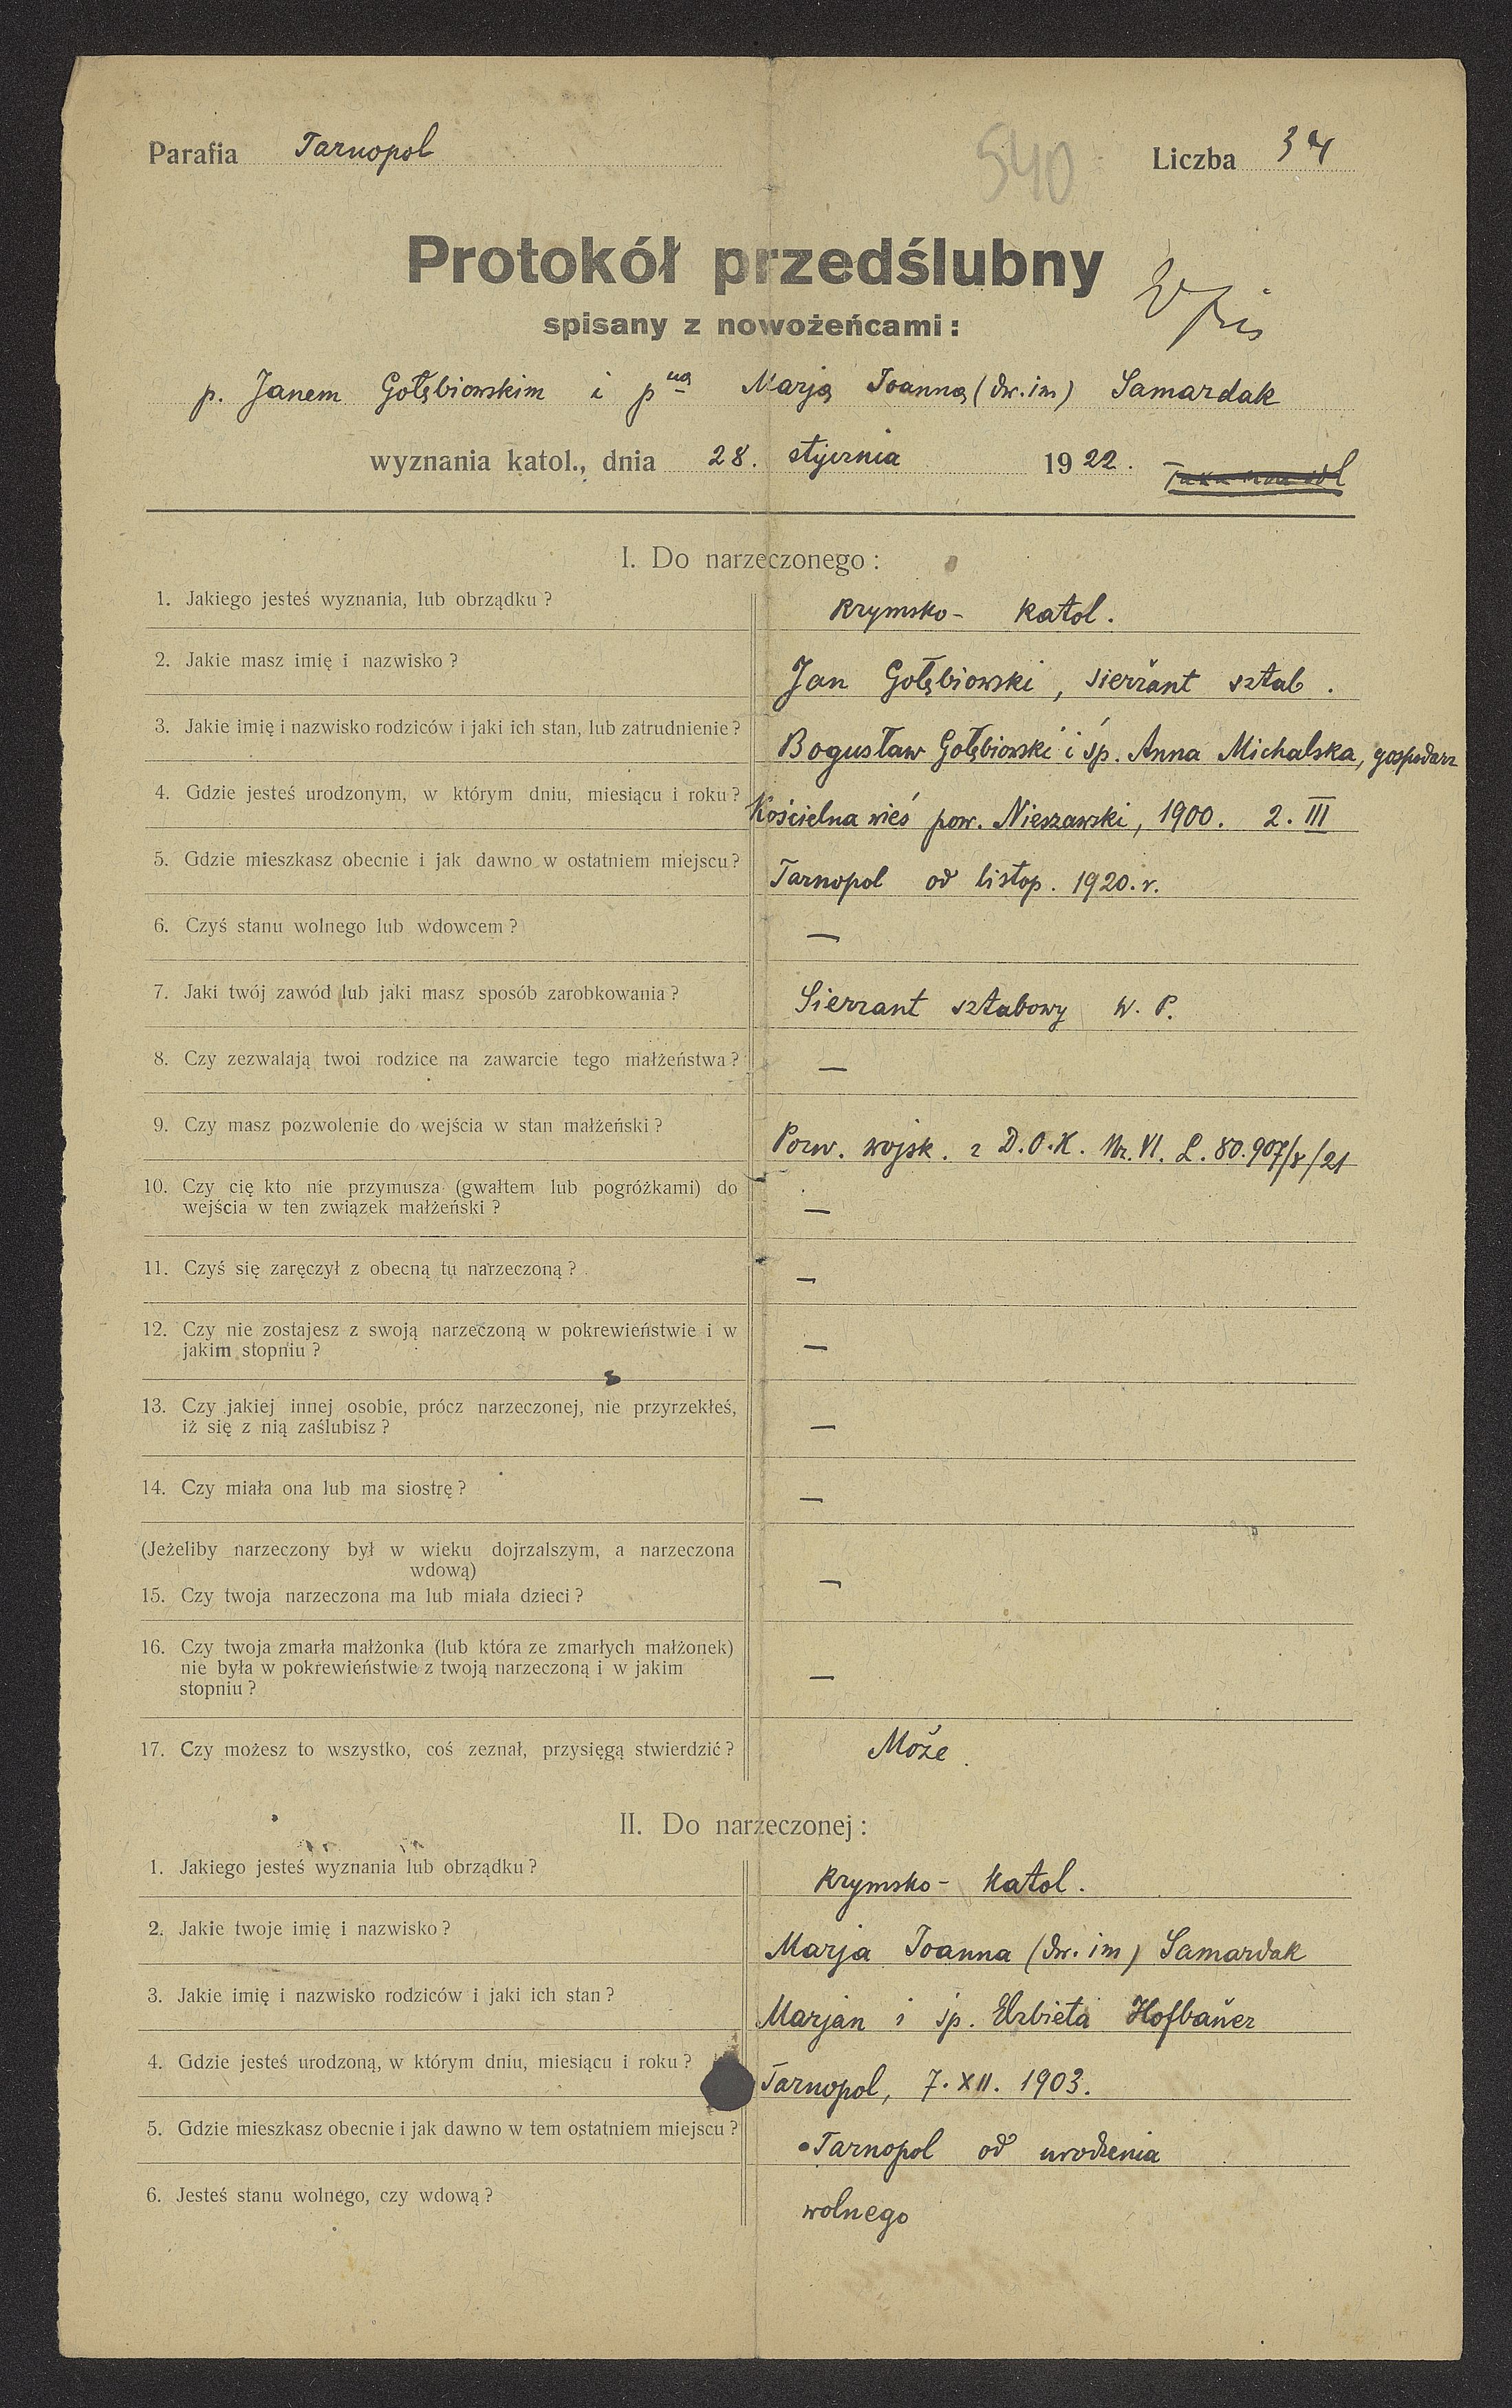 Parafia Tarnopol 540 Liczba 34
Protokół przedślubny
spisany z nowożeńcami:
p. Janem Gołębiowskim i pną Marją Joanną (dw. im) Samardak
wyznania katol., dnia 28. stycznia 1922.
I. Do narzeczonego:
1. Jakiego jesteś wyznania, lub obrządku? Rzymsko- katol.
2. Jakie masz imię i nazwisko? Jan Gołębiowski, sierżant sztab.
3. Jakie imię i nazwisko rodziców i jaki ich stan, lub zatrudnienie? Bogusław Gołębiowski i śp. Anna Michalska, gospodarz
4. Gdzie jesteś urodzonym, w którym dniu, miesiącu i roku? Kościelna wieś pow. Nieszawski, 1900. 2. III
5. Gdzie mieszkasz obecnie i jak dawno w ostatniem miejscu? Tarnopol od listop. 1920. r.
6. Czyś stanu wolnego lub wdowcem? —
7. Jaki twój zawód lub jaki masz sposób zarobkowania? Sierzant sztabowy W. P.
8. Czy zezwalają twoi rodzice na zawarcie tego małżeństwa? —
9. Czy masz pozwolenie do wejścia w stan małżeński? Pozw. wojsk. z D.O.K. Nr. VI. L. 80.907/ /21
10. Czy cię kto nie przymusza (gwałtem lub pogróżkami) do
wejścia w ten związek małżeński? —
11. Czyś się zaręczył z obecną tu narzeczoną? —
12. Czy nie zostajesz z swoją narzeczoną w pokrewieństwie i w
jakim stopniu? —
13. Czy jakiej innej osobie, prócz narzeczonej, nie przyrzekłeś,
iż się z nią zaślubisz? —
14. Czy miała ona lub ma siostrę? —
(Jeżeliby narzeczony był w wieku dojrzalszym, a narzeczona
wdową)
15. Czy twoja narzeczona ma lub miała dzieci? —
16. Czy twoja zmarła małżonka (lub która ze zmarłych małżonek)
nie była w pokrewieństwie z twoją narzeczoną i w jakim
stopniu? —
17. Czy możesz to wszystko, coś zeznał, przysięgą stwierdzić? Może.
II. Do narzeczonej:
1. Jakiego jesteś wyznania lub obrządku? Rzymsko- katol.
2. Jakie twoje imię i nazwisko? Marja Joanna (dw. im) Samardak
3. Jakie imię i nazwisko rodziców i jaki ich stan? Marjan i śp. Elzbieta Hofbauer
4. Gdzie jesteś urodzoną, w którym dniu, miesiącu i roku? Tarnopol, 7. XII. 1903.
5. Gdzie mieszkasz obecnie i jak dawno w tem ostatniem miejscu? Tarnopol od urodzenia
6. Jesteś stanu wolnego, czy wdową? wolnego